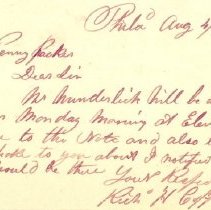 Philad Aug 4
Penny Packer
Dear Sir
Mr Wunderlich will be a
Monday Morning at Elev
to the Note and also
to you about I notified
would be there Yours Respec
Rich H